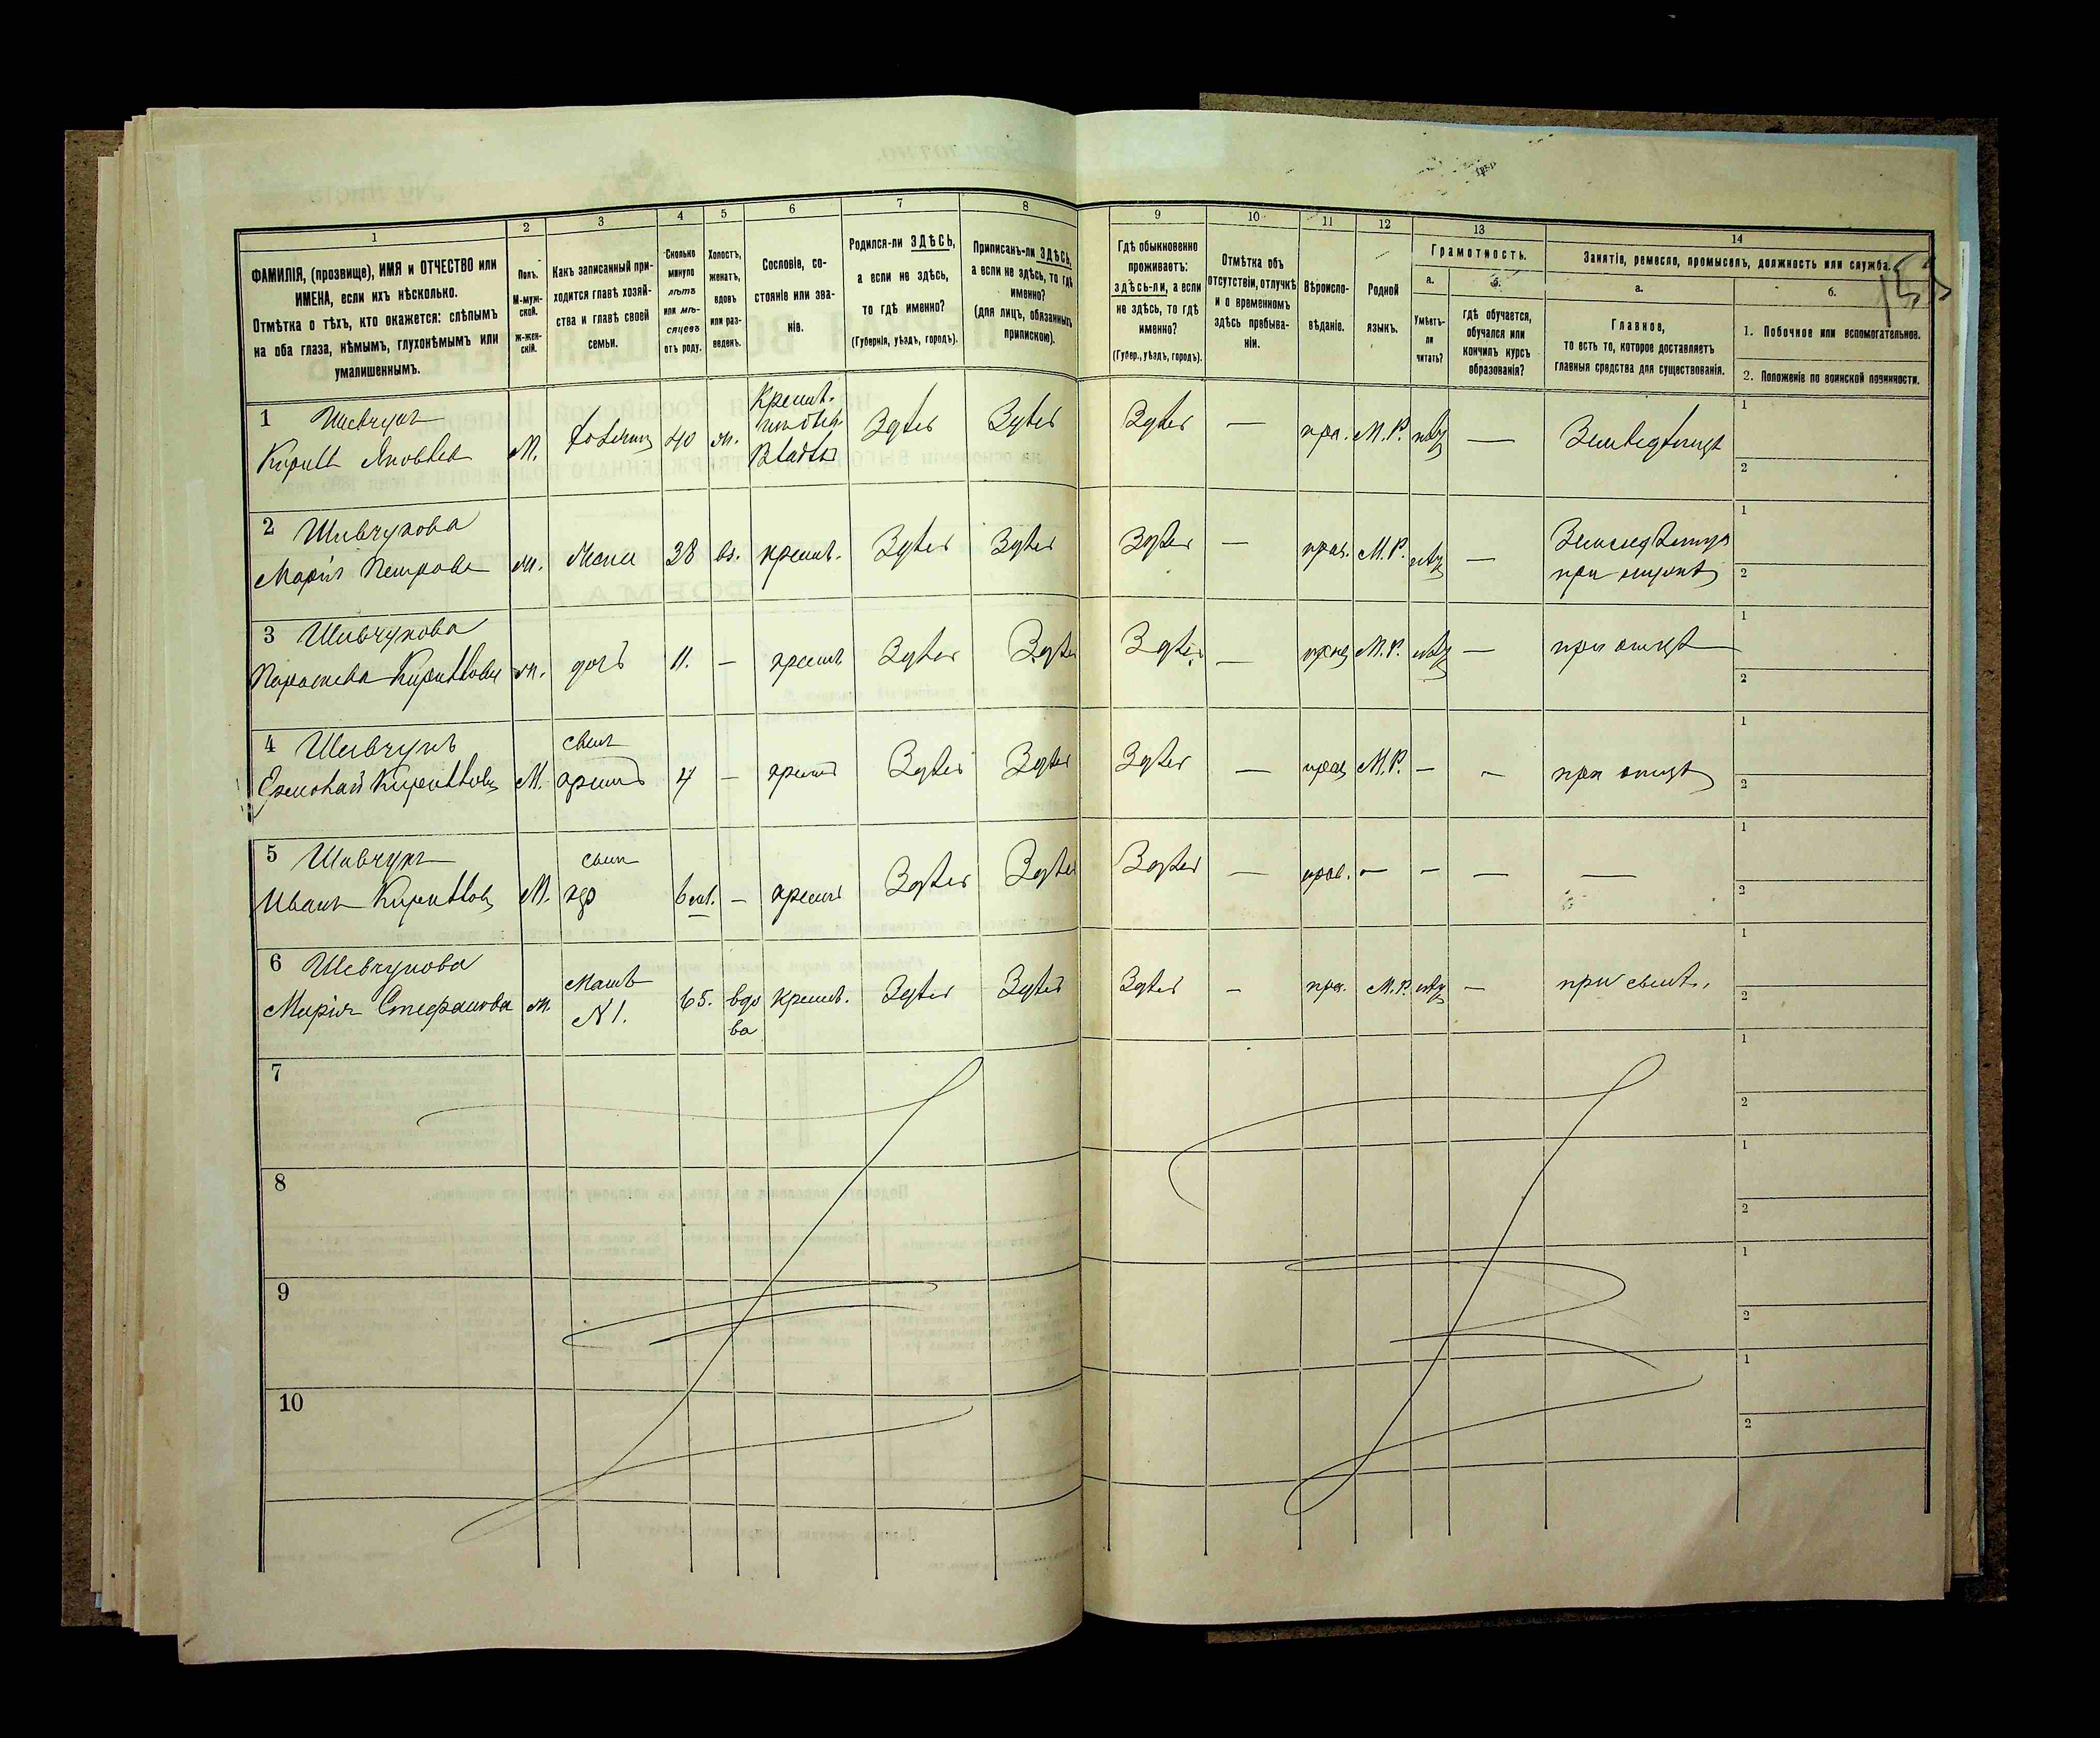 1
2
3
4
5
6
7
8
ФАМИЛІЯ, (прозвище), ИМЯ и ОТЧЕСТВО или
ИМЕНА, если ихъ нѣсколько.
Отмѣтка о тѣхъ, кто окажется: слѣпымъ
на оба глаза, нѣмымъ, глухонѣмымъ или
умалишеннымъ.
Полъ.
М-муж-
ской.
Ж-жен-
скій.
Какъ записанный при-
ходится главѣ хозяй-
ства и главѣ своей
семьи.
Сколько
минуло
лѣтъ
или мѣ-
сяцевъ
отъ роду.
Холостъ,
женатъ,
вдовъ
или раз-
веденъ.
Сословіе, со-
стояніе или зва-
ніе.
Родился-ли ЗДѢСЬ,
а если не здѣсь,
то гдѣ именно?
(Губернія, уѣздъ, городъ).
Приписанъ-ли ЗДѢСЬ,
а если не здѣсь, то гдѣ
именно?
(для лицъ, обязанныхъ
припискою).
9
10
11
12
13
14
Гдѣ обыкновенно
проживаетъ:
здѣсь-ли, а если
не здѣсь, то гдѣ
именно?
(Губер., уѣздъ, городъ).
Отмѣтка объ
отсутствіи, отлучкѣ
и о временномъ
здѣсь пребыва-
ніи.
Вѣроиспо-
вѣданіе.
Родной
языкъ.
Грамотность.
а.
б.
Умѣетъ-
ли
читать?
гдѣ обучается,
обучался или
кончилъ курсъ
образованія?
Занятіе, ремесло, промыселъ, должность или служба.
а.
б.
Главное,
то есть то, которое доставляетъ
главныя средства для существованія.
1. Побочное или вспомогательное.
2. Положеніе по воинской повинности.
1 Шевчукъ
Кирилъ Яковлев М. 40 ж. Здѣсь Здѣсь Здѣсь — пра. М.Р. нѣтъ — 1
2
2 Шевчукова
Марія Петрова ж. жена 38 крест. Здѣсь Здѣсь Здѣсь — прав. М.Р. нѣтъ — 1
при мужѣ 2
3 Шевчукова
Параскева Кирилова ж. дочь 11. — крест Здѣсь Здѣсь Здѣсь — прав М.Р. нѣтъ — при отцѣ 1
2
4 Шевчукъ сынъ
Кирилловъ М. 4 — крест Здѣсь Здѣсь Здѣсь — прав М.Р. — — при отцѣ 1
2
5 Шевчукъ сынъ
Иванъ Кириловъ М. 6 м. — крест Здѣсь Здѣсь Здѣсь — прав. — — — — 1
2
6 Шевчукова мать
Марія Стефанова ж. N 1. 65. вдо крест. Здѣсь Здѣсь Здѣсь — пра. М.Р. нѣтъ — при сынѣ. 1
ва 2
7 1
2
8 1
2
9 1
2
10 1
2